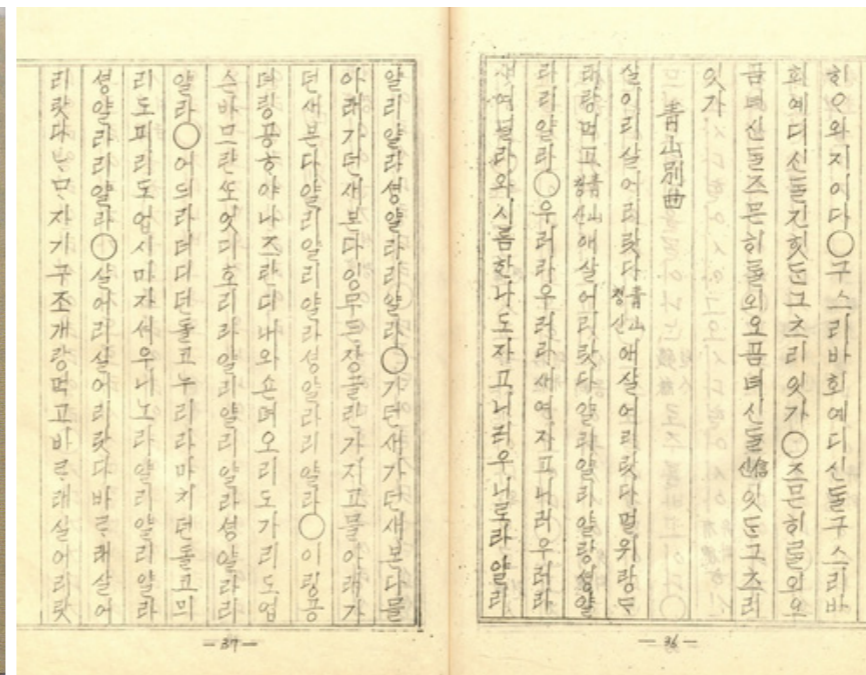 히ᄋᆞ와지이다○구스리바회예디신ᄃᆞᆯ구스리바
회예디신ᄃᆞᆯ긴힛ᄃᆞᆫ그츠리잇가○즈믄히ᄅᆞᆯ외오
곰녀신ᄃᆞᆯ즈믄히ᄅᆞᆯ외오곰녀신ᄃᆞᆯ信신잇ᄃᆞᆫ그츠리
잇가
靑山別曲
살어리살어리랏다靑山쳥산애살어리랏다멀위랑ᄃᆞ
래랑먹고靑山쳥산애살어리랏다얄리얄리얄랑셩얄
라리얄라○우러라우러라새여자고니러우러라
새여널라와시름한나도자고니러우니로라얄리
— 36 —
얄리얄라셩얄라리얄라○가던새가던새본다믈
아래가던새본다잉무든장글란가지고믈아래가
던새본다얄리얄리얄라셩얄라리얄라○이링공
뎌링공ᄒᆞ야나즈란디내와손뎌오리도가리도업
슨바므란ᄯᅩ엇디호리라얄리얄리얄라셩얄라리
얄라○어듸라더디던돌코누리라마치던돌코믜
리도괴리도업시마자셔우니노라얄리얄리얄라
셩얄라리얄라○살어리살어리랏다바ᄅᆞ래살어
리랏다ᄂᆞᄆᆞ자기구조개랑먹고바ᄅᆞ래살어리랏
— 37 —